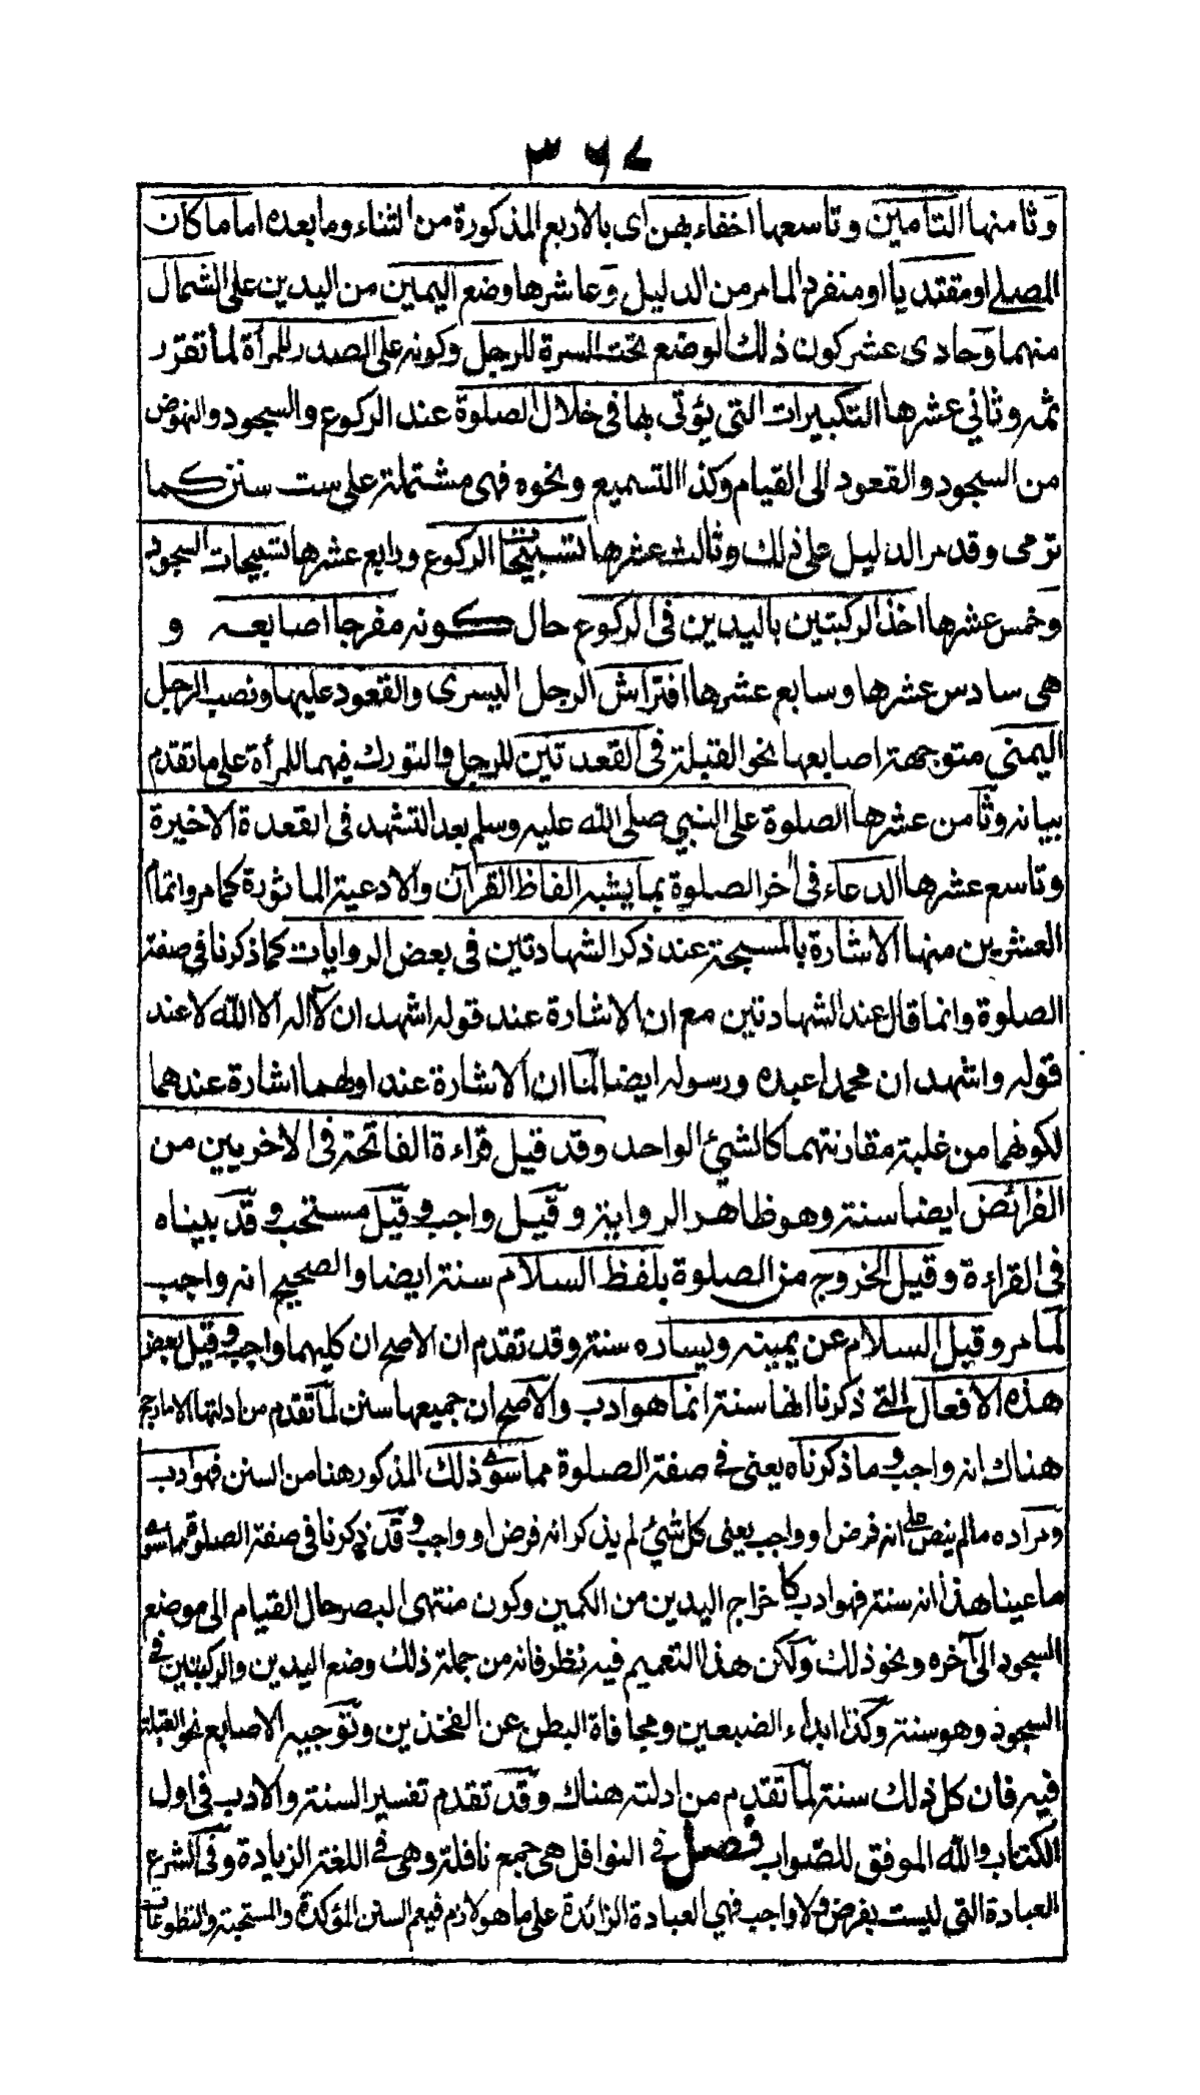 ٣٦٧
وثامنها التأمين وتاسعها اخفاء بهن اى بالاربع المذكورة من الثناء وما بعده اماما كان
المصلے او مقتديا او منفردا لما مر من الدليل وعاشرها وضع اليمين من اليدين على الشمال
منهما وحادى عشر كون ذلك الوضع تحت السرة للرجل وكونه على الصدر للمرأة لما تقرر
ثمه وثاني عشرها التكبيرات التى يؤتى بها فى خلال الصلوة عند الركوع والسجود والنهوض
من السجود والقعود الى القيام وكذا التسميع ونحوه فهى مشتملة على ست سنن كما
ترى وقد مر الدليل على ذلك وثالث عشرها تسبيحات الركوع ورابع عشرها تسبيحات السجود
وخمس عشرها اخذ الركبتين باليدين فى الركوع حال كونه مفرجا اصابعه و
هى سادس عشرها وسابع عشرها افتراش الرجل اليسرى والقعود عليها ونصب الرجل
اليمنى متوجهة اصابعها نحو القبلة فى القعدتين للرجل والتورك فيهما للمرأة على ما تقدم
بيانه وثامن عشرها الصلوة على النبي صلى الله عليه وسلم بعد التشهد فى القعدة الاخيرة
وتاسع عشرها الدعاء فى اخر الصلوة بما يشبه الفاظ القرآن والادعية الماثورة كما مر واتمام
العشرين منها الاشارة بالمسبحة عند ذكر الشهادتين فى بعض الروايات كما ذكرنا فى صفة
الصلوة وانما قال عند الشهادتين مع ان الاشارة عند قوله اشهد ان لآ اله الا الله لا عند
قوله واشهد ان محمدا عبده ورسوله ايضا لما ان الاشارة عند اولهما اشارة عندهما
لكونهما من غلبة مقارنتهما كالشئ الواحد وقد قيل قراءة الفاتحة فى الاخريين من
الفرائض ايضا سنة وهو ظاهر الرواية وقيل واجب وقيل مستحب وقد بيناه
فى القراءة وقيل الخروج من الصلوة بلفظ السلام سنة ايضا والصحيح انه واجب
لما مر وقيل السلام عن يمينه ويساره سنة وقد تقدم ان الاصح ان كليهما واجب وقيل بعض
هذه الافعال التے ذكرنا انها سنة انما هو ادب والاصح ان جميعها سنن لما تقدم من ادلتها الا ما رجح
هناك انه واجب وما ذكرناه يعنى فے صفة الصلوة مما سوے ذلك المذكور هنا من السنن فهو ادب
ومراده ما لم ينص علے انه فرض او واجب يعنى كل شئ لم يذكر انه فرض او واجب وقد ذكرنا فى صفة الصلوة مما سوے
ما عينا هذا انه سنة فهو ادب كاخراج اليدين من الكمين وكون منتهى البصر حال القيام الى موضع
السجود الى آخره ونحو ذلك ولكن هذا التعميم فيه نظر فانه من جملة ذلك وضع اليدين والركبتين فے
السجود وهو سنة وكذا ابداء الضبعين ومجافاة البطن عن الفخذين وتوجيه الاصابع نحو القبلة
فيه فان كل ذلك سنة لما تقدم من ادلته هناك وقد تقدم تفسير السنة والادب فى اول
الكتاب والله الموفق للصواب فصل فے النوافل هى جمع نافلة وهى فے اللغة الزيادة وفى الشرع
العبادة التى ليست بفرض ولا واجب فهي العبادة الزائدة على ما هو لازم فيعم السنن المؤكدة والمستحبة والتطوعات